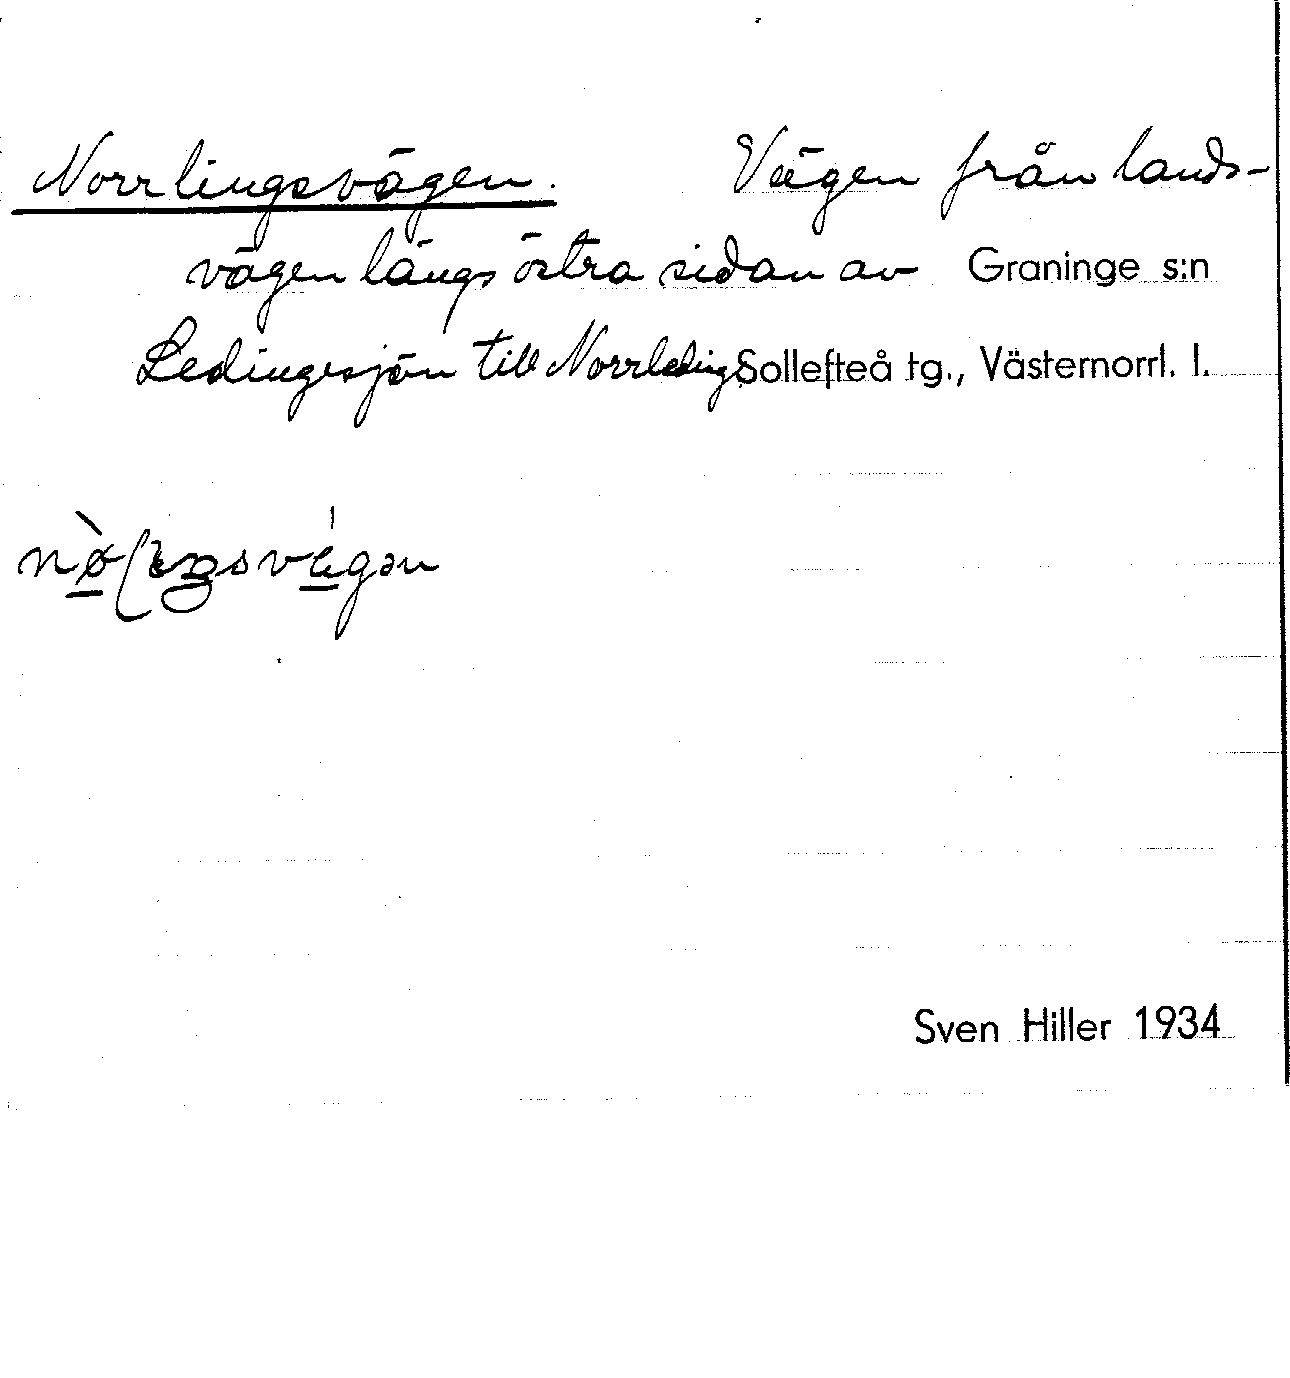 Norrlingsvägen. Vägen från lands-
vägen längs östra sidan av Graninge s:n
Ledingesjön till Norrleding. Sollefteå tg., Västernorrl. l.
Sven Hiller 1934